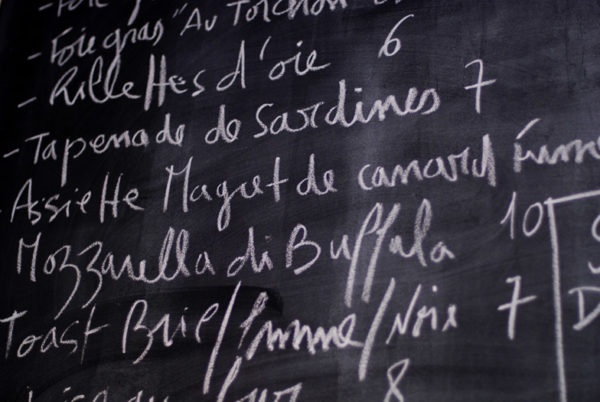 - Foie gras "Au Torchon
- Rillettes d'oie 6
- Tapenade de Sardines 7
- Assiette Magret de canard fumé
Mozzarella di Buffala 10
Toast Brie/Pomme/Noix 7
8